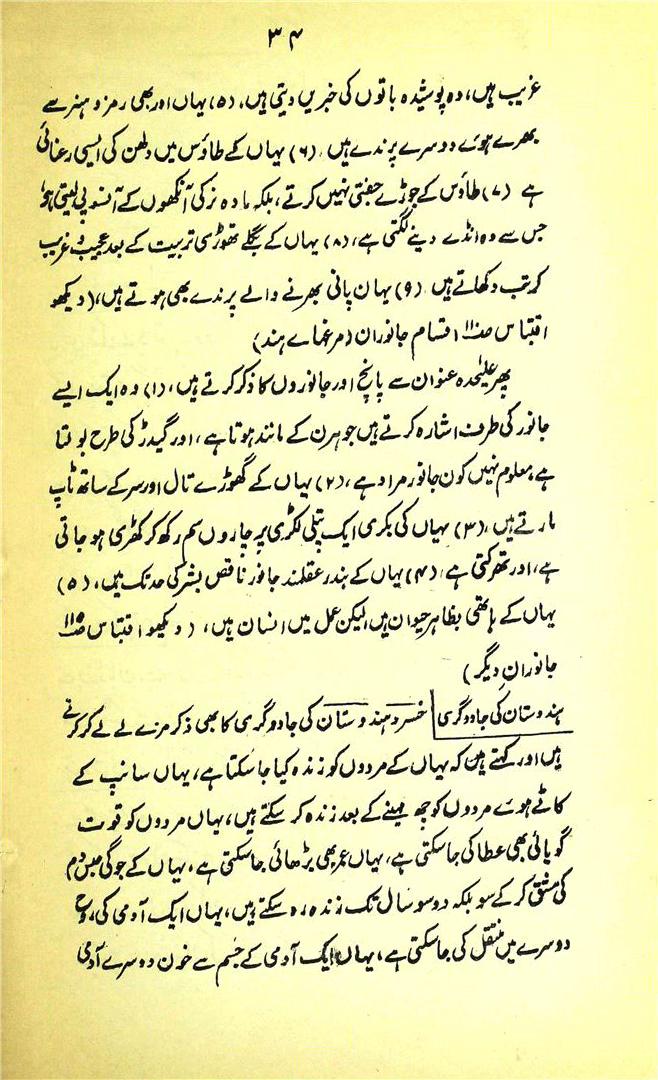 ۳۴
غریب ہیں، وہ پوشیدہ باتوں کی خبریں دیتی ہیں، (۵) یہاں اور بھی رمز و ہنر سے
بھرے ہوئے دوسرے پرندے ہیں (۶) یہاں کے طاؤس میں دلہن کی ایسی رعنائی
ہے (۷) طاؤس کے جوڑے جفتی نہیں کرتے، بلکہ مادہ نر کی آنکھوں کے آنسو پی لیتی ہو
جس سے وہ انڈے دینے لگتی ہے، (۸) یہاں کے بگلے تھوڑی تربیت کے بعد عجیب و غریب
کرتب دکھاتے ہیں (۹) یہان پانی بھرنے والے پرندے بھی ہوتے ہیں، (دیکھو
اقتباس صلا اقسام جانوران (مرغہاے ہند)
پھر علیٰحدہ عنوان سے پانچ اور جانوروں کا ذکر کرتے ہیں، (۱) وہ ایک ایسے
جانور کی طرف اشارہ کرتے ہیں جو ہرن کے مانند ہوتا ہے، اور گیدڑ کی طرح بولتا
ہے معلوم نہیں کون جانور مراد ہے، (۲) یہاں کے گھوڑے تال اور سر کے ساتھ ٹاپ
مارتے ہیں، (۳) یہاں کی بکری ایک پتلی لکڑی پر چاروں سم رکھ کر کھڑی ہو جاتی
ہے، اور تھرکتی ہے (۴) یہاں کے بندر عقلمند جانور ناقص بشر کی حد تک ہیں، (۵)
یہاں کے ہاتھی بظاہر حیوان ہیں لیکن عمل میں انسان ہیں، (دیکھو اقتباس ص۱۱۵
جانورانِ دیگر)
ہندوستان کی جادوگری خسرو ہندوستان کی جادوگری کا بھی ذکر مزے لے لے کر کرتے
ہیں اور کہتے ہین کہ یہاں کے مردوں کو زندہ کیا جا سکتا ہے، یہاں سانپ کے
کاٹے ہوے مردوں کو چھ مہینے کے بعد زندہ کر سکتے ہیں، یہاں مردوں کو قوت
گویائی بھی عطا کی جا سکتی ہے، یہاں عمر بھی بڑھائی جا سکتی ہے، یہاں کے جوگی حبس دم
کی مشق کر کے سو بلکہ دو سو سال تک زندہ رہ سکتے ہیں، یہاں ایک آدمی کی روح
دوسرے میں منتقل کی جا سکتی ہے، یہاں ایک آدمی کے جسم سے خون دوسرے آدمی